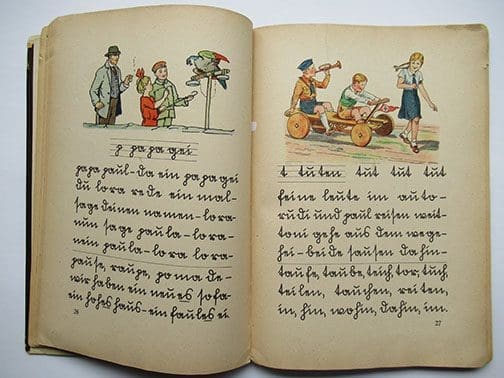 p pa pa gei
papa paul-da ein pa pa gei
du lora re de ein mal-
sage deinen namen-lora-
nun sage paula-lora-
nein paula-lora lora-
pause, raupe, po ma de-
wir haben ein neues sofa-
ein hohes haus-ein faules ei
26
t tuten tut tut tut
feine leute im auto-
rudi und paul reisen weit-
toni gehe aus dem wege-
hei-beide sausen dahin-
taufe, taube, teich, tor, tuch,
teilen, tauchen, reiten,
in, hin, wohin, dahin, im.
27